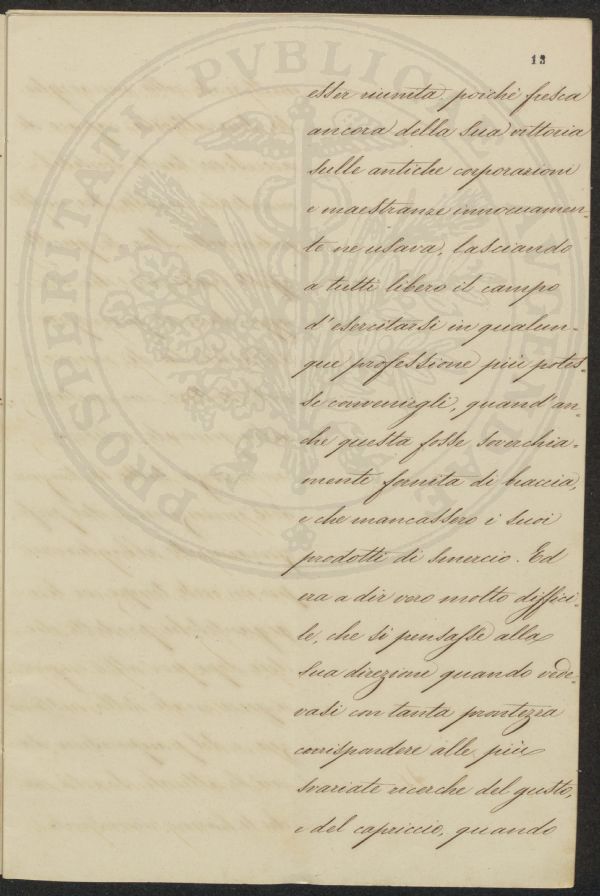 13
esser riunita. poiché fresca
ancora della sua vittoria
sulle antiche corporazioni
e maestranze innocuamen-
te ne usava, lasciando
a tutti libero il campo
d'esercitarsi in qualun-
que professione più potes-
se convenirgli, quand'an-
che questa fosse soverchia-
mente fornita di braccia,
e che mancassero i suoi
prodotti di smercio. Ed
era a dir vero molto diffici-
le, che si pensasse alla
sua direzione quando vede-
vasi con tanta prontezza
corrispondere alle più
svariate ricerche del gusto,
e del capriccio, quando
PROSPERITATI PVBLICAE AVGENDAE